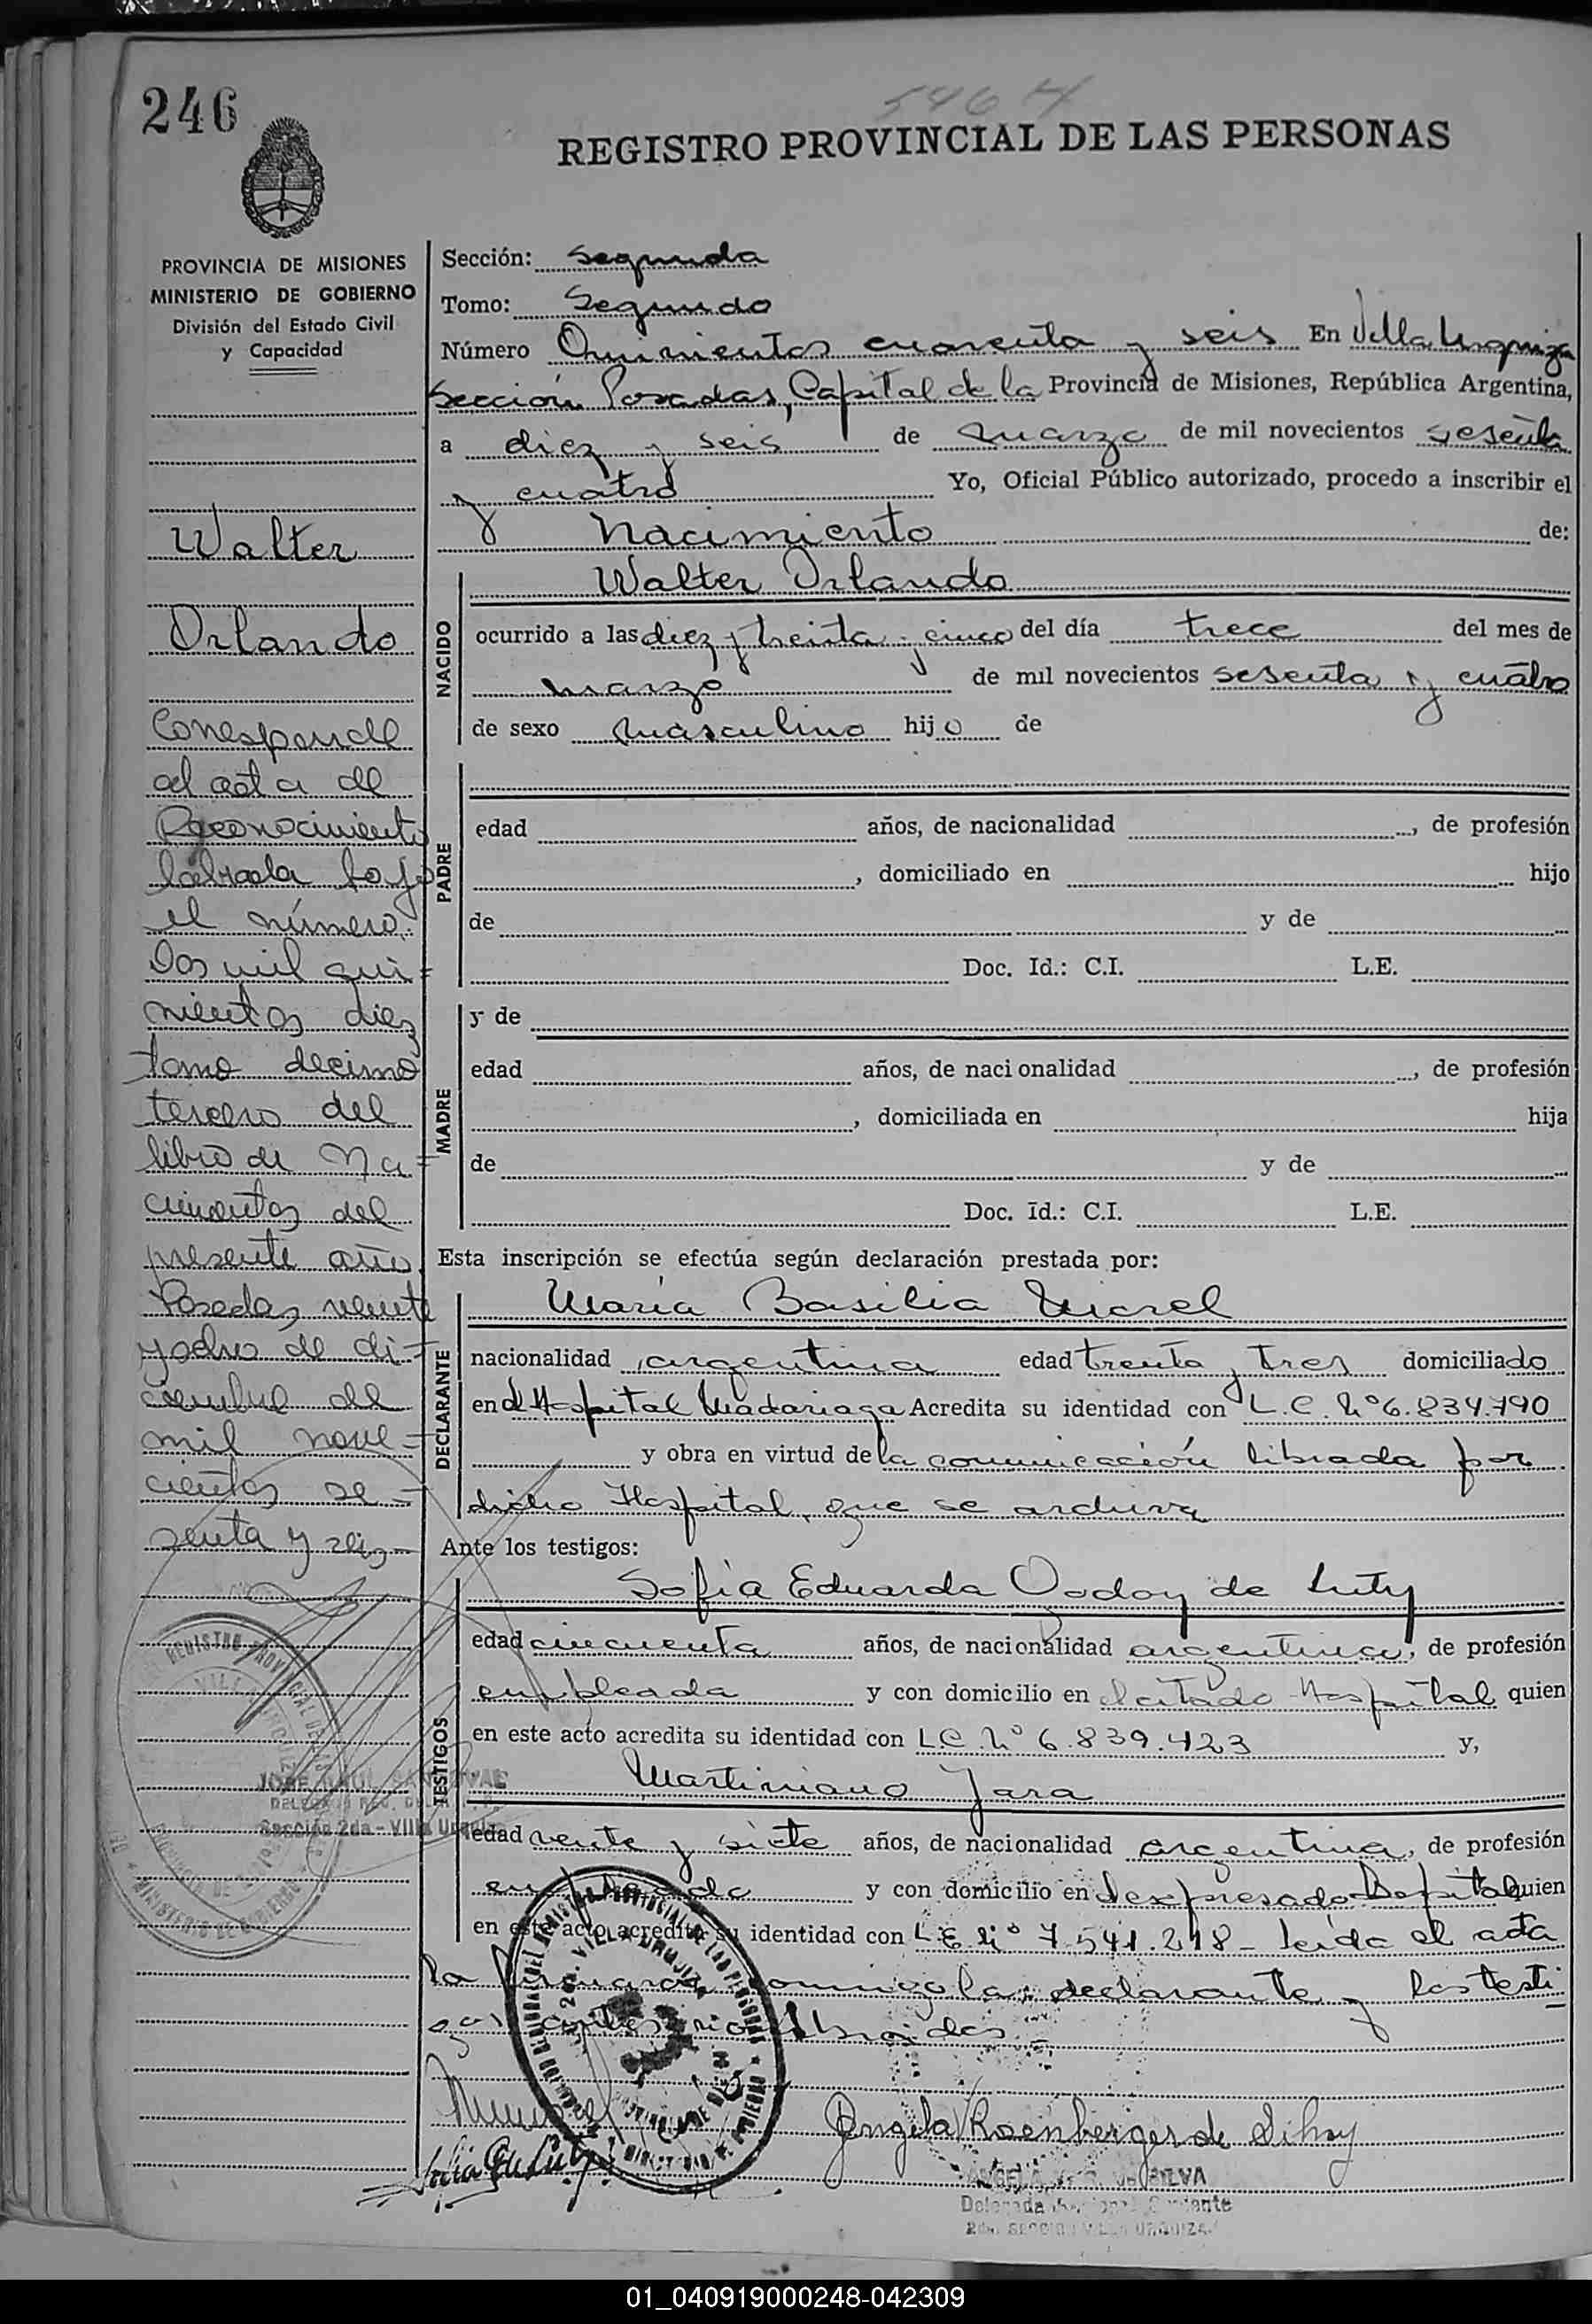 246
546 H
REGISTRO PROVINCIAL DE LAS PERSONAS
PROVINCIA DE MISIONES
MINISTERIO DE GOBIERNO
División del Estado Civil
y Capacidad
Walter
Orlando
Corresponde
al acta de
Reconocimiento
labrada bajo
el número
Dos mil qui=
nientos diez
tomo decimo
tercero del
libro de Na=
cimientos del
presente año.
Posadas, veinte
y ocho de di-
ciembre de
mil nove-
cientos se-
senta y seis-
Sección: Segunda
Tomo: Segundo
Número Quinientos cuarenta y seis En Villa Urquiza
Sección Posadas, Capital de la Provincia de Misiones, República Argentina,
a diez y seis de marzo de mil novecientos sesenta
y cuatro Yo, Oficial Público autorizado, procedo a inscribir el
nacimiento de:
NACIDO
Walter Orlando
ocurrido a las diez y treinta y cinco del día trece del mes de
marzo de mil novecientos sesenta y cuatro
de sexo masculino hijo de
PADRE
edad años, de nacionalidad , de profesión
, domiciliado en hijo
de y de
Doc. Id.: C.I. L.E.
MADRE
y de
edad años, de nacionalidad , de profesión
, domiciliada en hija
de y de
Doc. Id.: C.I. L.E.
Esta inscripción se efectúa según declaración prestada por:
DECLARANTE
María Basilia Morel
nacionalidad argentina edad treinta y tres domiciliado
en el Hospital Madariaga Acredita su identidad con L.C. Nº 6.834.790
y obra en virtud de la comunicación librada por
dicho Hospital, que se archiva
Ante los testigos:
TESTIGOS
Sofía Eduarda Godoy de Luty
edad cincuenta años, de nacionalidad argentina, de profesión
empleada y con domicilio en el citado Hospital quien
en este acto acredita su identidad con L.C. Nº 6.839.423 y,
Martiniano Jara
edad veinte y siete años, de nacionalidad argentina, de profesión
empleado y con domicilio en el expresado Hospital quien
en este acto acredita su identidad con L.E. Nº 7.541.218- Leída el acta
la firmaron conmigo la declarante y los testi
gos
JOSE RAUL SANDOVAL
Sección 2da - Villa Urquiza
Angela Rosenberger de Silva
ANGELA R. DE SILVA
2da. SECCION VILLA URQUIZA
01_040919000248-042309